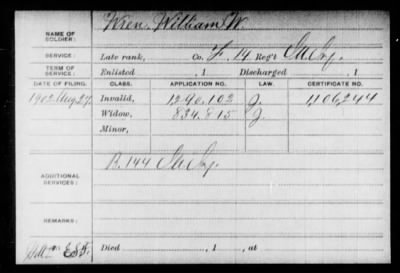 NAME OF SOLDIER: Wren, William W.
SERVICE: Late rank, Co. F, 14 Reg't Ill Inf.
TERM OF SERVICE: Enlisted , 1 Discharged , 1
DATE OF FILING. CLASS. APPLICATION NO. LAW. CERTIFICATE NO.
1902 Aug 27 Invalid, 1290.102 J. 1,106,244
Widow, 834.815 J.
Minor,
ADDITIONAL SERVICES: B. 144 Ill Inf.
REMARKS:
Died , 1 , at